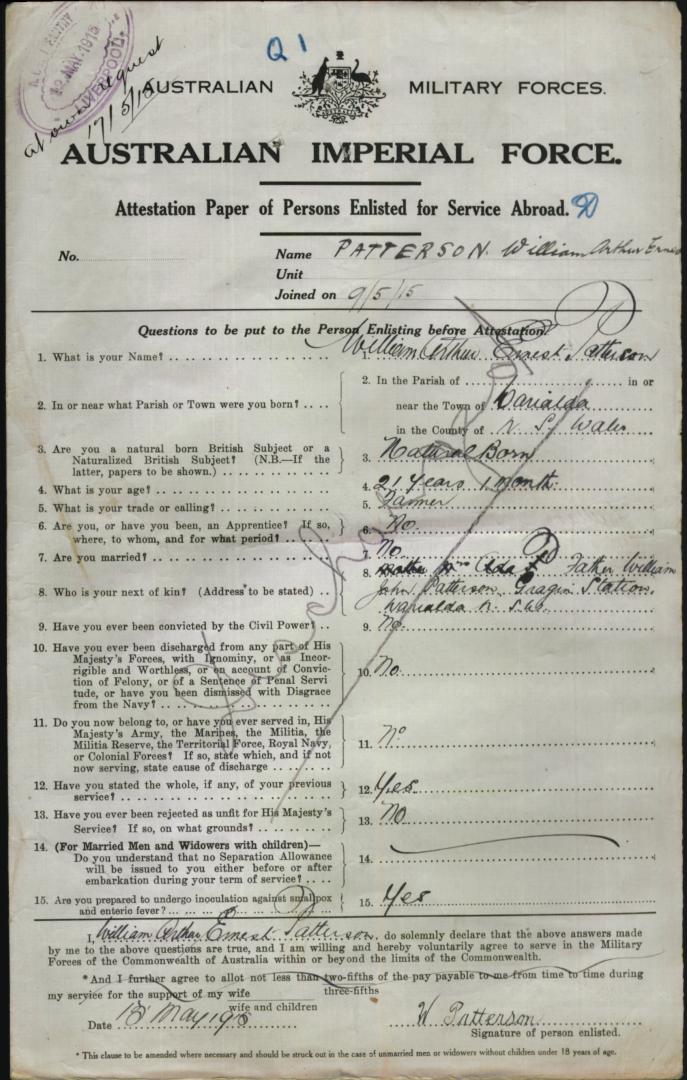 Q 1
12 MAY 1915
LIVERPOOL.
At own request
17/5/15
AUSTRALIAN MILITARY FORCES.
AUSTRALIAN IMPERIAL FORCE.
Attestation Paper of Persons Enlisted for Service Abroad. D
No. Name PATTERSON. William Arthur Ernest
Unit
Joined on 9/5/15
Questions to be put to the Person Enlisting before Attestation.
1. What is your Name? .. 1. William Arthur Ernest Patterson
2. In or near what Parish or Town were you born? ..
2. In the Parish of in or
near the Town of Warialda
in the County of N S. Wales
3. Are you a natural born British Subject or a
Naturalized British Subject? (N.B.—If the
latter, papers to be shown.) 3. Natural Born
4. What is your age? 4. 21 Years 1 month.
5. What is your trade or calling? 5. Farmer
6. Are you, or have you been, an Apprentice? If so,
where, to whom, and for what period? 6. No.
7. Are you married? 7. No
8. Who is your next of kin? (Address* to be stated)
8. Father William
John Patterson Gragin Station,
Warialda N. S.W.
9. Have you ever been convicted by the Civil Power? 9. No.
10. Have you ever been discharged from any part of His
Majesty's Forces, with Ignominy, or as Incor-
rigible and Worthless, or on account of Convic-
tion of Felony, or of a Sentence of Penal Servi
tude, or have you been dismissed with Disgrace
from the Navy? 10. No
11. Do you now belong to, or have you ever served in, His
Majesty's Army, the Marines, the Militia, the
Militia Reserve, the Territorial Force, Royal Navy,
or Colonial Forces? If so, state which, and if not
now serving, state cause of discharge 11. No
12. Have you stated the whole, if any, of your previous
service? 12. Yes
13. Have you ever been rejected as unfit for His Majesty's
Service? If so, on what grounds? 13. No
14. (For Married Men and Widowers with children)—
Do you understand that no Separation Allowance
will be issued to you either before or after
embarkation during your term of service? 14.
15. Are you prepared to undergo inoculation against small pox
and enteric fever? 15. Yes
I, William Arthur Ernest Patterson, do solemnly declare that the above answers made
by me to the above questions are true, and I am willing and hereby voluntarily agree to serve in the Military
Forces of the Commonwealth of Australia within or beyond the limits of the Commonwealth.
*And I further agree to allot not less than two-fifths of the pay payable to me from time to time during
three-fifths
my service for the support of my wife
wife and children
Date 13 May 1915 W Patterson
Signature of person enlisted.
* This clause to be amended where necessary and should be struck out in the case of unmarried men or widowers without children under 18 years of age.